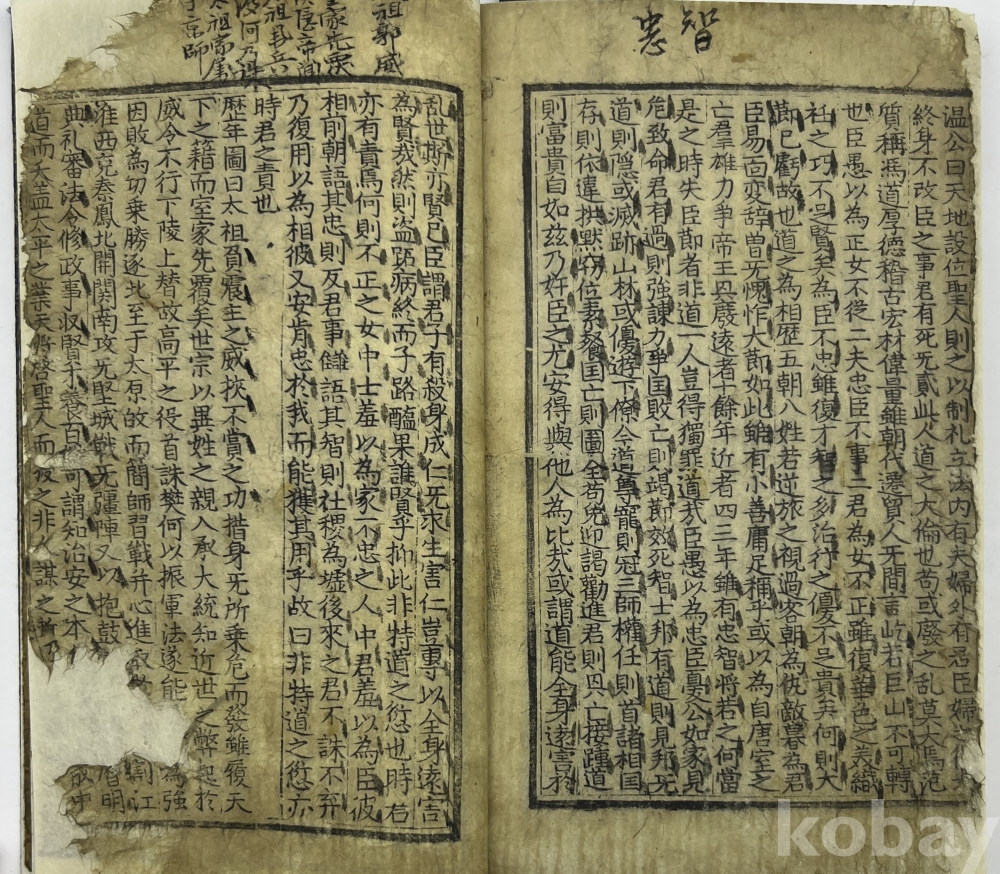 智
温公曰天地設位聖人則之以制礼立法内有夫婦外有君臣婦之從夫
終身不改臣之事君有死无貳此人道之大倫也苟或廢之乱莫大焉范
質稱馮道厚德稽古宏材偉量雖朝代迁貿人无間言屹若巨山不可轉
也臣愚以為正女不從二夫忠臣不事二君為女不正雖復華色之美織
紝之巧不足賢矣為臣不忠雖復才智之多治行之優不足貴矣何則大
節已虧故也道之為相歴五朝八姓若逆旅之視過客朝為仇敵暮為君
臣易面变辞曽无愧怍大節如此雖有小善庸足稱乎或以為自唐室之
亡羣雄力爭帝王兴廢遠者十餘年近者四三年雖有忠智將若之何當
是之時失臣節者非道一人豈得獨罪道㦲臣愚以為忠臣憂公如家見
危致命君有過則強諫力爭国敗亡則竭節效死智士邦有道則見邦无
道則隱或滅跡山林或優遊下僚今道尊寵則冠三師權任則首諸相国
存則依違拱黙竊位素餐国亡則圖全苟免迎謁勸進君則兴亡接踵道
則富貴自如茲乃奸臣之尤安得與他人為比㦲或謂道能全身遠害於
祖郭威
乱世斯亦賢已臣謂君子有殺身成仁无求生害仁豈專以全身遠害
為賢㦲然則盗跖病終而子路醢果誰賢乎抑此非特道之愆也時君
亦有責焉何則不正之女中士羞以為家不忠之人中君羞以為臣彼
相前朝語其忠則反君事讎語其智則社稷為墟後來之君不誅不弃
乃復用以為相彼又安肯忠於我而能獲其用乎故曰非特道之愆亦
時君之責也
歴年圖曰太祖負震主之威挾不賞之功措身无所乗危而發雖覆天
下之籍而室家先覆矣世宗以異姓之親入承大統知近世之弊起於
威令不行下陵上替故高平之役首誅樊何以振軍法遂能為強
因敗為功乗勝逐北至于太原故而簡師習戰并心進割江
淮西克秦鳳北開関南攻无堅城戰无彊陣又以抱鼓明
典礼審法令修政事収賢才養百可謂知治安之本
道而夭盖太平之業天將啓聖人而授之非人謀之所